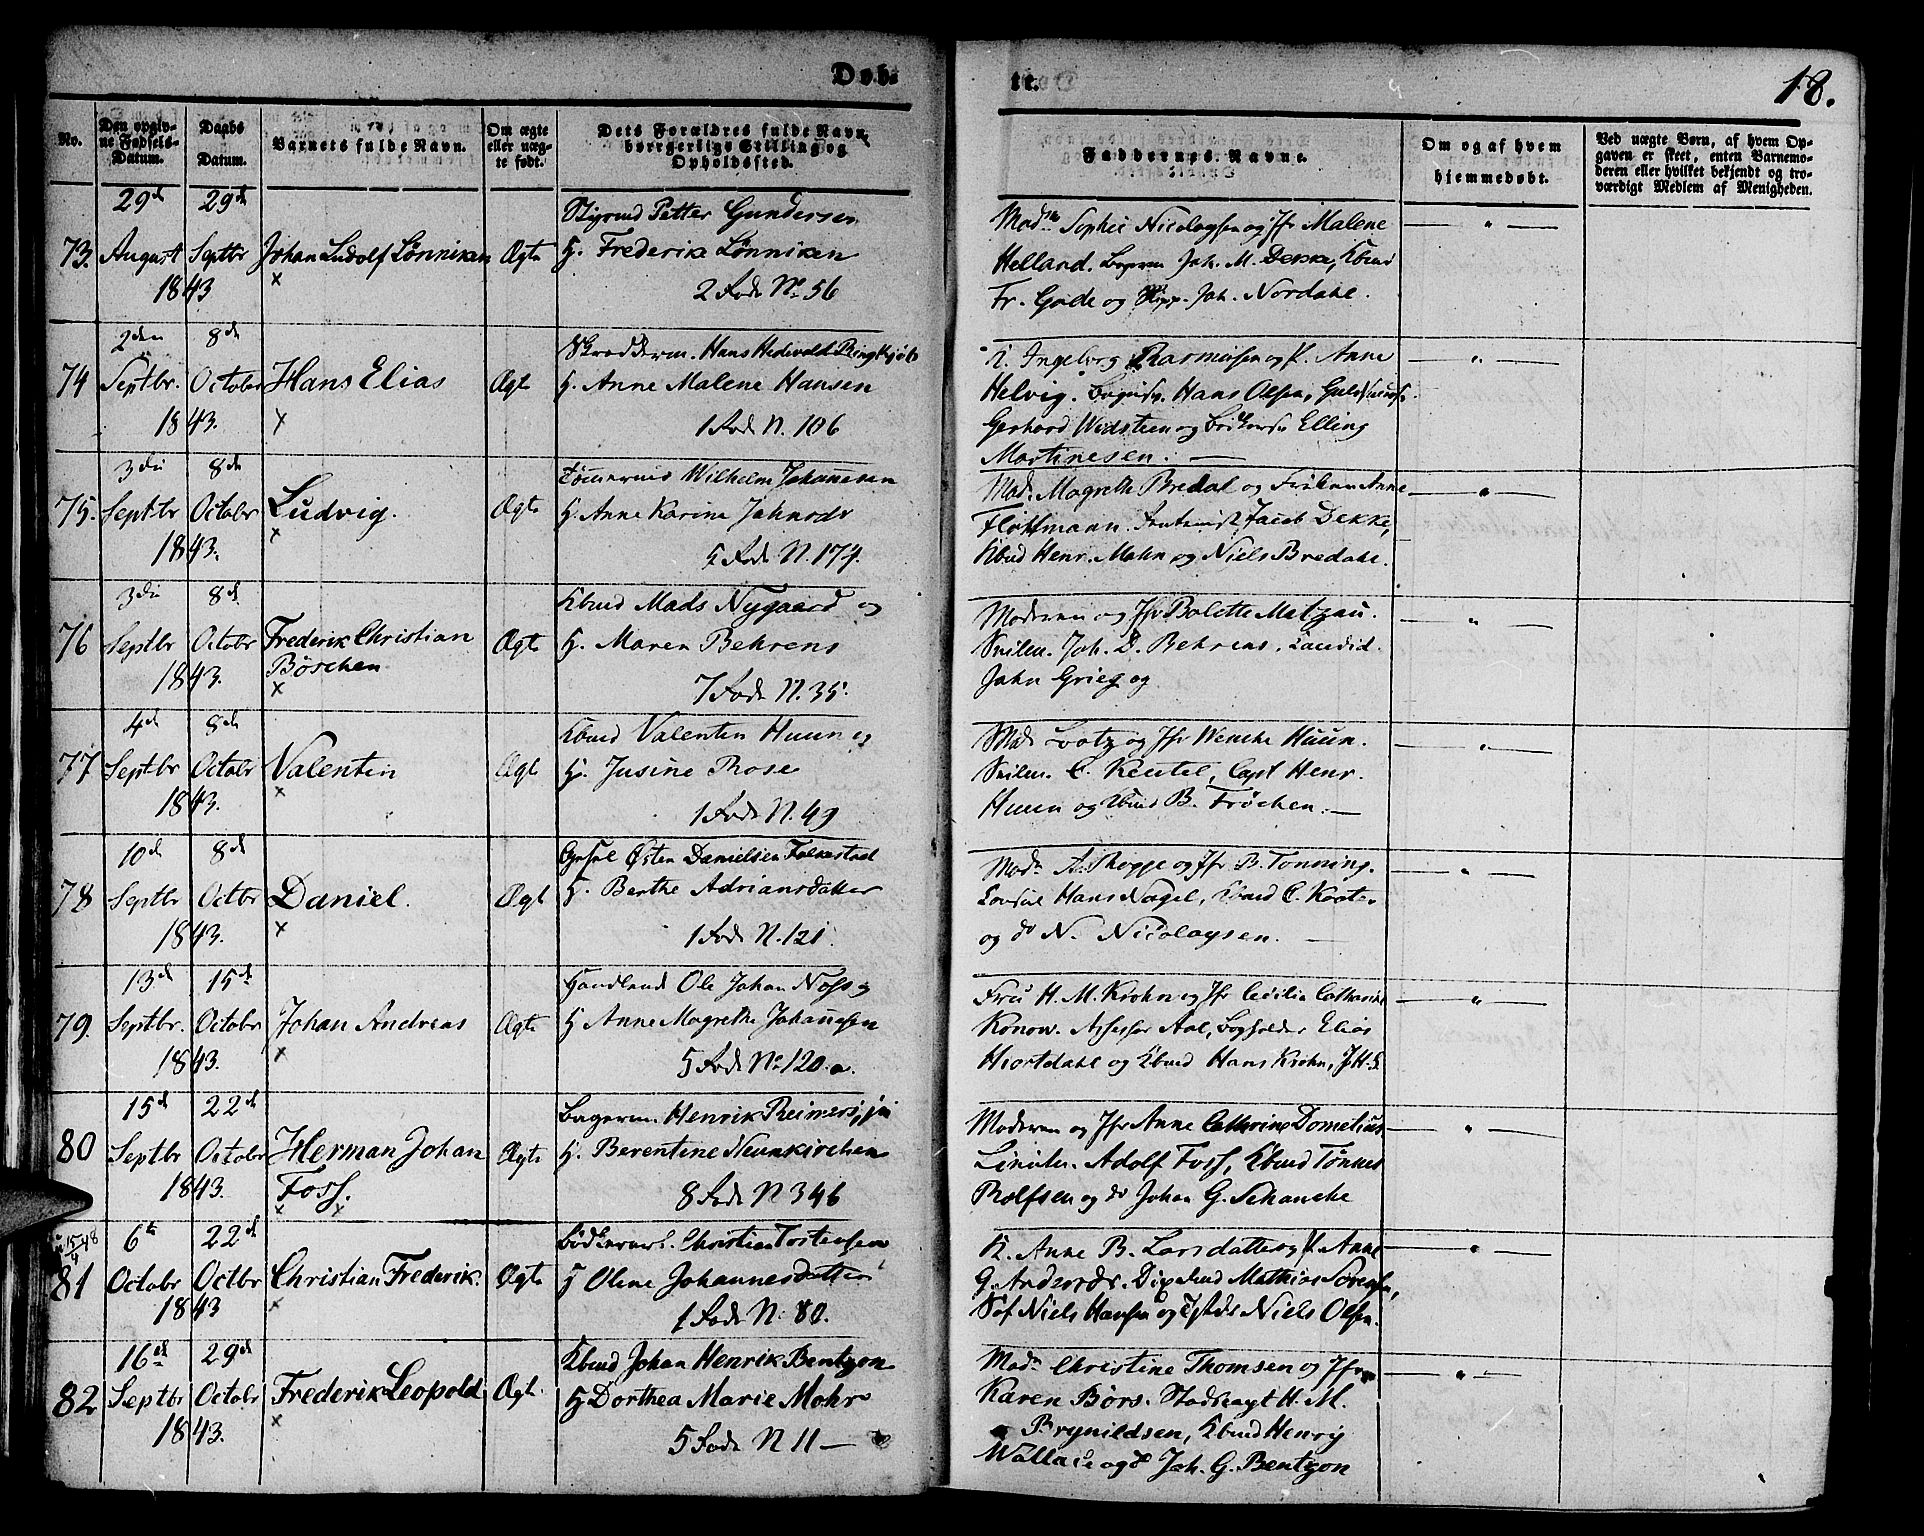 Døb-
te.
18.
No.
Den opgiv-
ne Fødsels-
Datum.
Daabs
Datum.
Barnets fulde Navn.
Om ægte
eller uæg-
te født.
Dets Forældres fulde Navn,
borgerlige Stilling og
Opholdssted.
Faddernes Navne.
Om og af hvem
hjemmedøbt.
Ved uægte Børn, af hvem Op-
gaven er skeet, enten Barnemo-
deren eller hvilket bekjendt og tro-
værdigt Medlem af Menigheden.
73.
29d
August
29d
Septbr
1843
Johan Ludolf Lønniken
Ægte
Petter Gundersen
H. Frederik Lønniken
2 Rode No 56
Madm Sophie Nicolaysen og Jfr Malene
Helland. Joh. M. Dekke, Kbmd
Fr. Gade og Skipp. Joh. Nordahl.
74
2den
Septbr.
8d
October
1843.
Hans Elias
Ægt
Hans Hedevald Ringkjøb
H. Anne Malene Hansen
1 Rode N. 106
K. Ingeborg Rasmusen og P. Anne
Helvig. Hans Olsen,
Gerhard Widsteen og Elling
Martinesen. —
75.
3die
Septbr
8de
Octobr
1843.
Ludvig.
Ægte
Tømmermd Wilhelm Johannesen
H. Anne Karine Jahnsdr
5 Rode N. 177.
Mad. Magrethe Bredal og Frøken Anne
Flottmann. Jacob Dekke,
Kbmd Henr. Mohn og Niels Bredahl.
76
3die
Septbr
8d.
Octobr
1843.
Frederik Christian
Bøschen
Ægte
Kbmd Mads Nygaard og
H. Maren Behrens
7 Rode N. 35.
Moderen og Jfr Bolette Matzau.
Joh. D. Behrens, Candid.
Jahn Grieg og
77
4d
Septbr
8de
Octobr
1843.
Valentin
Ægt
Kbmd Valentin Huun og
H. Jusine Rose
1 Rode N. 49
Mad. Lootz og Jfr Wenche Huun.
C. Keutel, Capt Henr.
Huun og Kbmd B. Frøchen. —
78
10d
Septbr
8d
Octbr
1843.
Daniel.
Ægt
Østen Danielsen Falkestad
H. Berthe Adriansdatter
1 Rode N. 121.
Madm A. Rogge og Jfr B. Tonning.
Consul Hans Nagel, Kbmd C. Konter
og do N. Nicolaysen. —
79.
13d
Septbr.
15d
Octobr
1843.
Johan Andreas
Ægte
Ole Johan Noss og
H Anne Magrethe Johannesen
5 Rode No 120. a.
Fru H. M. Krohn og Jfr Cecilia Catharine
Konow. Assessor Aal, Bogholder Elias
Hiortdahl og Kbmd Hans Krohn,
80
15d
Septbr
22d
Octobr
1843.
Herman Johan
Foss.
Ægte
Bagerm. Henrik Reimers, jr
H. Berentine Neunkirchen
8 Rode N 346
Moderen og Jfr Anne Cathrine Dometius
Adolf Foss, Kbmd Tønnes
Rolfsen og do Johan G. Schancke
15/4 48
81
6te
Octobr
22d
Octbr
1843
Christian Frederik.
Ægte
Christian Tostensen
H Oline Johannesdatter
1 Rode N. 80.
K. Anne B. Larsdatter og P. Anne
G. Andersdr. Mathias
Niels Hansen og Niels Olsen.
82
16de
Septbr
29d
Octobr
1843.
Frederik Leopold
Ægt.
Kbmd Johan Henrik Bentzon
H Dorthea Marie Mohr
5 Rode N 11 —
Madm Christine Thomsen og Jfr
Karen Børs. Stadscapt H. M.
Brynildsen, Kbmd Henry
Wallace og do Joh. G. Bentzon